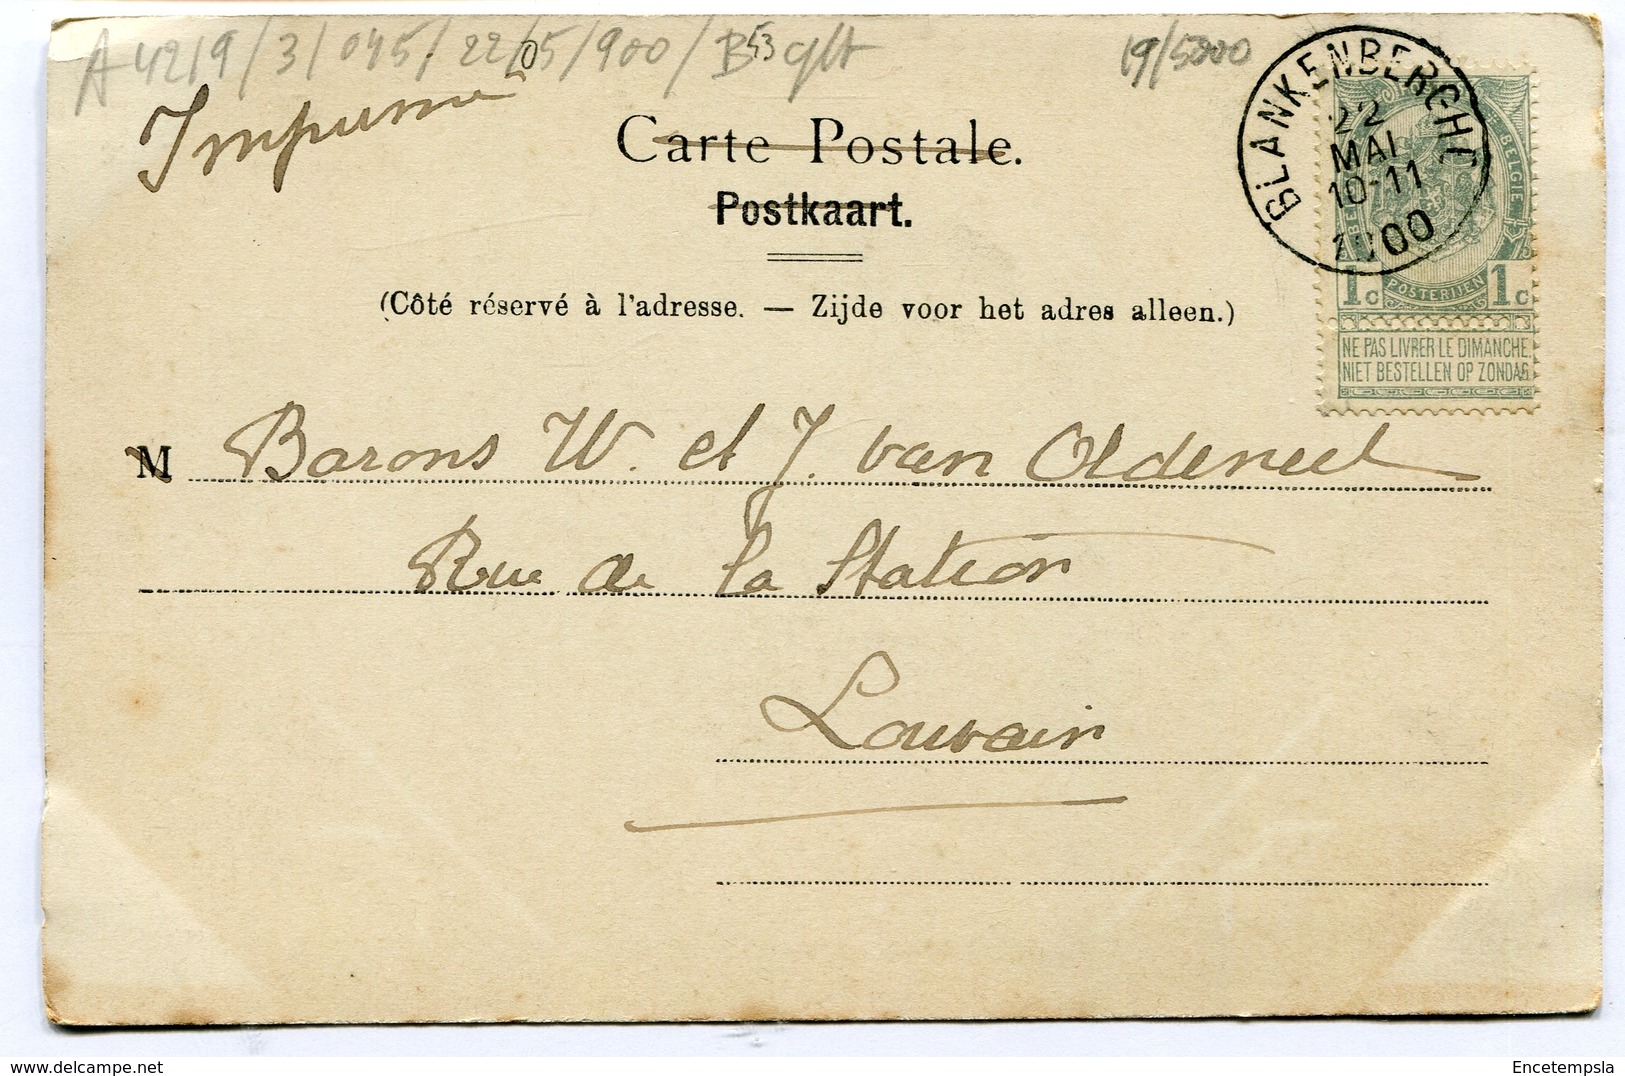 A 4219/3/045/22/5/900/B53
19/5000
Imprimé
Carte Postale.
Postkaart.
(Côté réservé à l'adresse. — Zijde voor het adres alleen.)
BLANKENBERGHE
22
MAI
10-11
1900
BELGIQUE BELGIË
1c POSTERIJEN 1c
NE PAS LIVRER LE DIMANCHE.
NIET BESTELLEN OP ZONDAG
M Barons W. et J. van Oldeneel
Rue de la Station
Louvain
Encetempsla